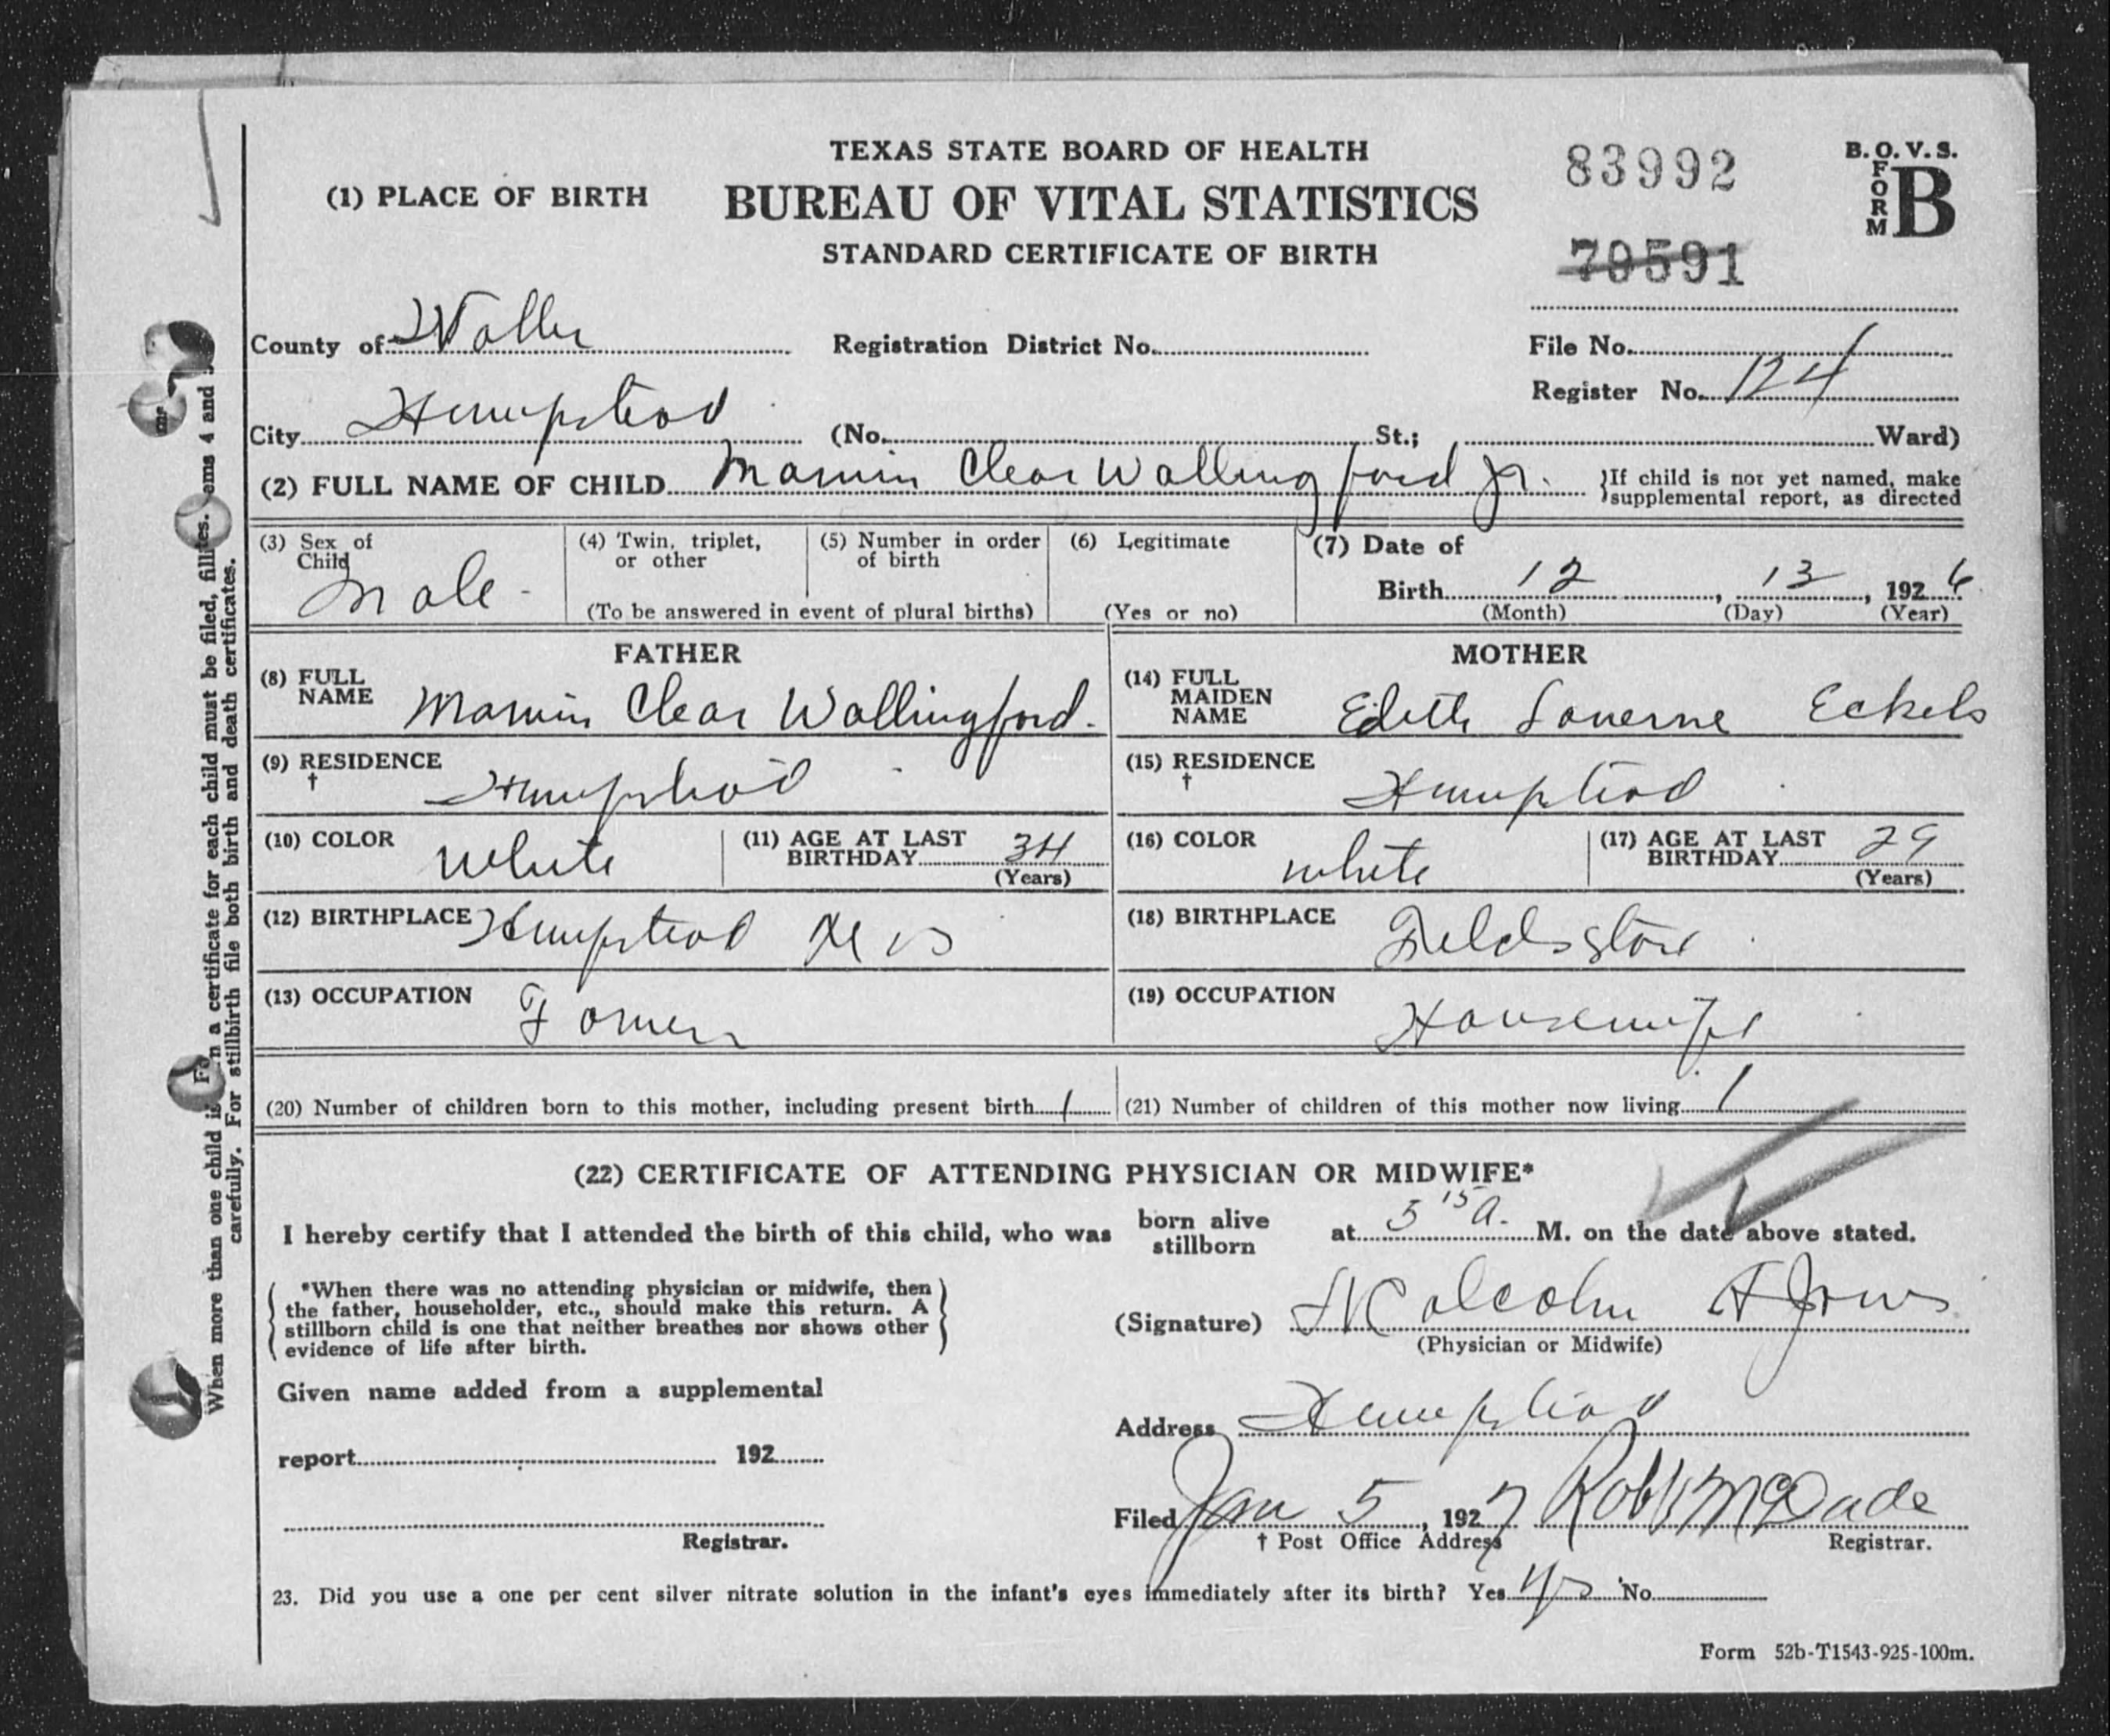 TEXAS STATE BOARD OF HEALTH
83992
B. O. V. S.
FORM B
(1) PLACE OF BIRTH
BUREAU OF VITAL STATISTICS
STANDARD CERTIFICATE OF BIRTH
79591
County of Waller Registration District No. File No.
Register No. 124
City Hempstead (No. St.; Ward)
(2) FULL NAME OF CHILD Marvin Clear Wallingford Jr. }If child is not yet named, make
supplemental report, as directed
(3) Sex of Child Male
(4) Twin, triplet, or other
(5) Number in order of birth
(To be answered in event of plural births)
(6) Legitimate
(Yes or no)
(7) Date of
Birth 12, 13, 1926
(Month) (Day) (Year)
FATHER
(8) FULL NAME Marvin Clear Wallingford.
(9) RESIDENCE † Hempstead
(10) COLOR White (11) AGE AT LAST BIRTHDAY 34
(Years)
(12) BIRTHPLACE Hempstead
(13) OCCUPATION Farmer
MOTHER
(14) FULL MAIDEN NAME Edith Laverne Eckels
(15) RESIDENCE † Hempstead
(16) COLOR White (17) AGE AT LAST BIRTHDAY 29
(Years)
(18) BIRTHPLACE Fields Store
(19) OCCUPATION Housewife
(20) Number of children born to this mother, including present birth 1 (21) Number of children of this mother now living 1
(22) CERTIFICATE OF ATTENDING PHYSICIAN OR MIDWIFE*
I hereby certify that I attended the birth of this child, who was born alive stillborn at 5 15 A. M. on the date above stated.
*When there was no attending physician or midwife, then
the father, householder, etc., should make this return. A
stillborn child is one that neither breathes nor shows other
evidence of life after birth.
(Signature) Malcolm A Jones
(Physician or Midwife)
Given name added from a supplemental
report 192
Registrar.
Address Hempstead
Filed Jan 5, 1927 McDade
† Post Office Address Registrar.
23. Did you use a one per cent silver nitrate solution in the infant's eyes immediately after its birth? Yes yes No
Form 52b-T1543-925-100m.
When more than one child is a certificate for each child must be filed, items 4 and
carefully. For stillbirth file both birth and death certificates.